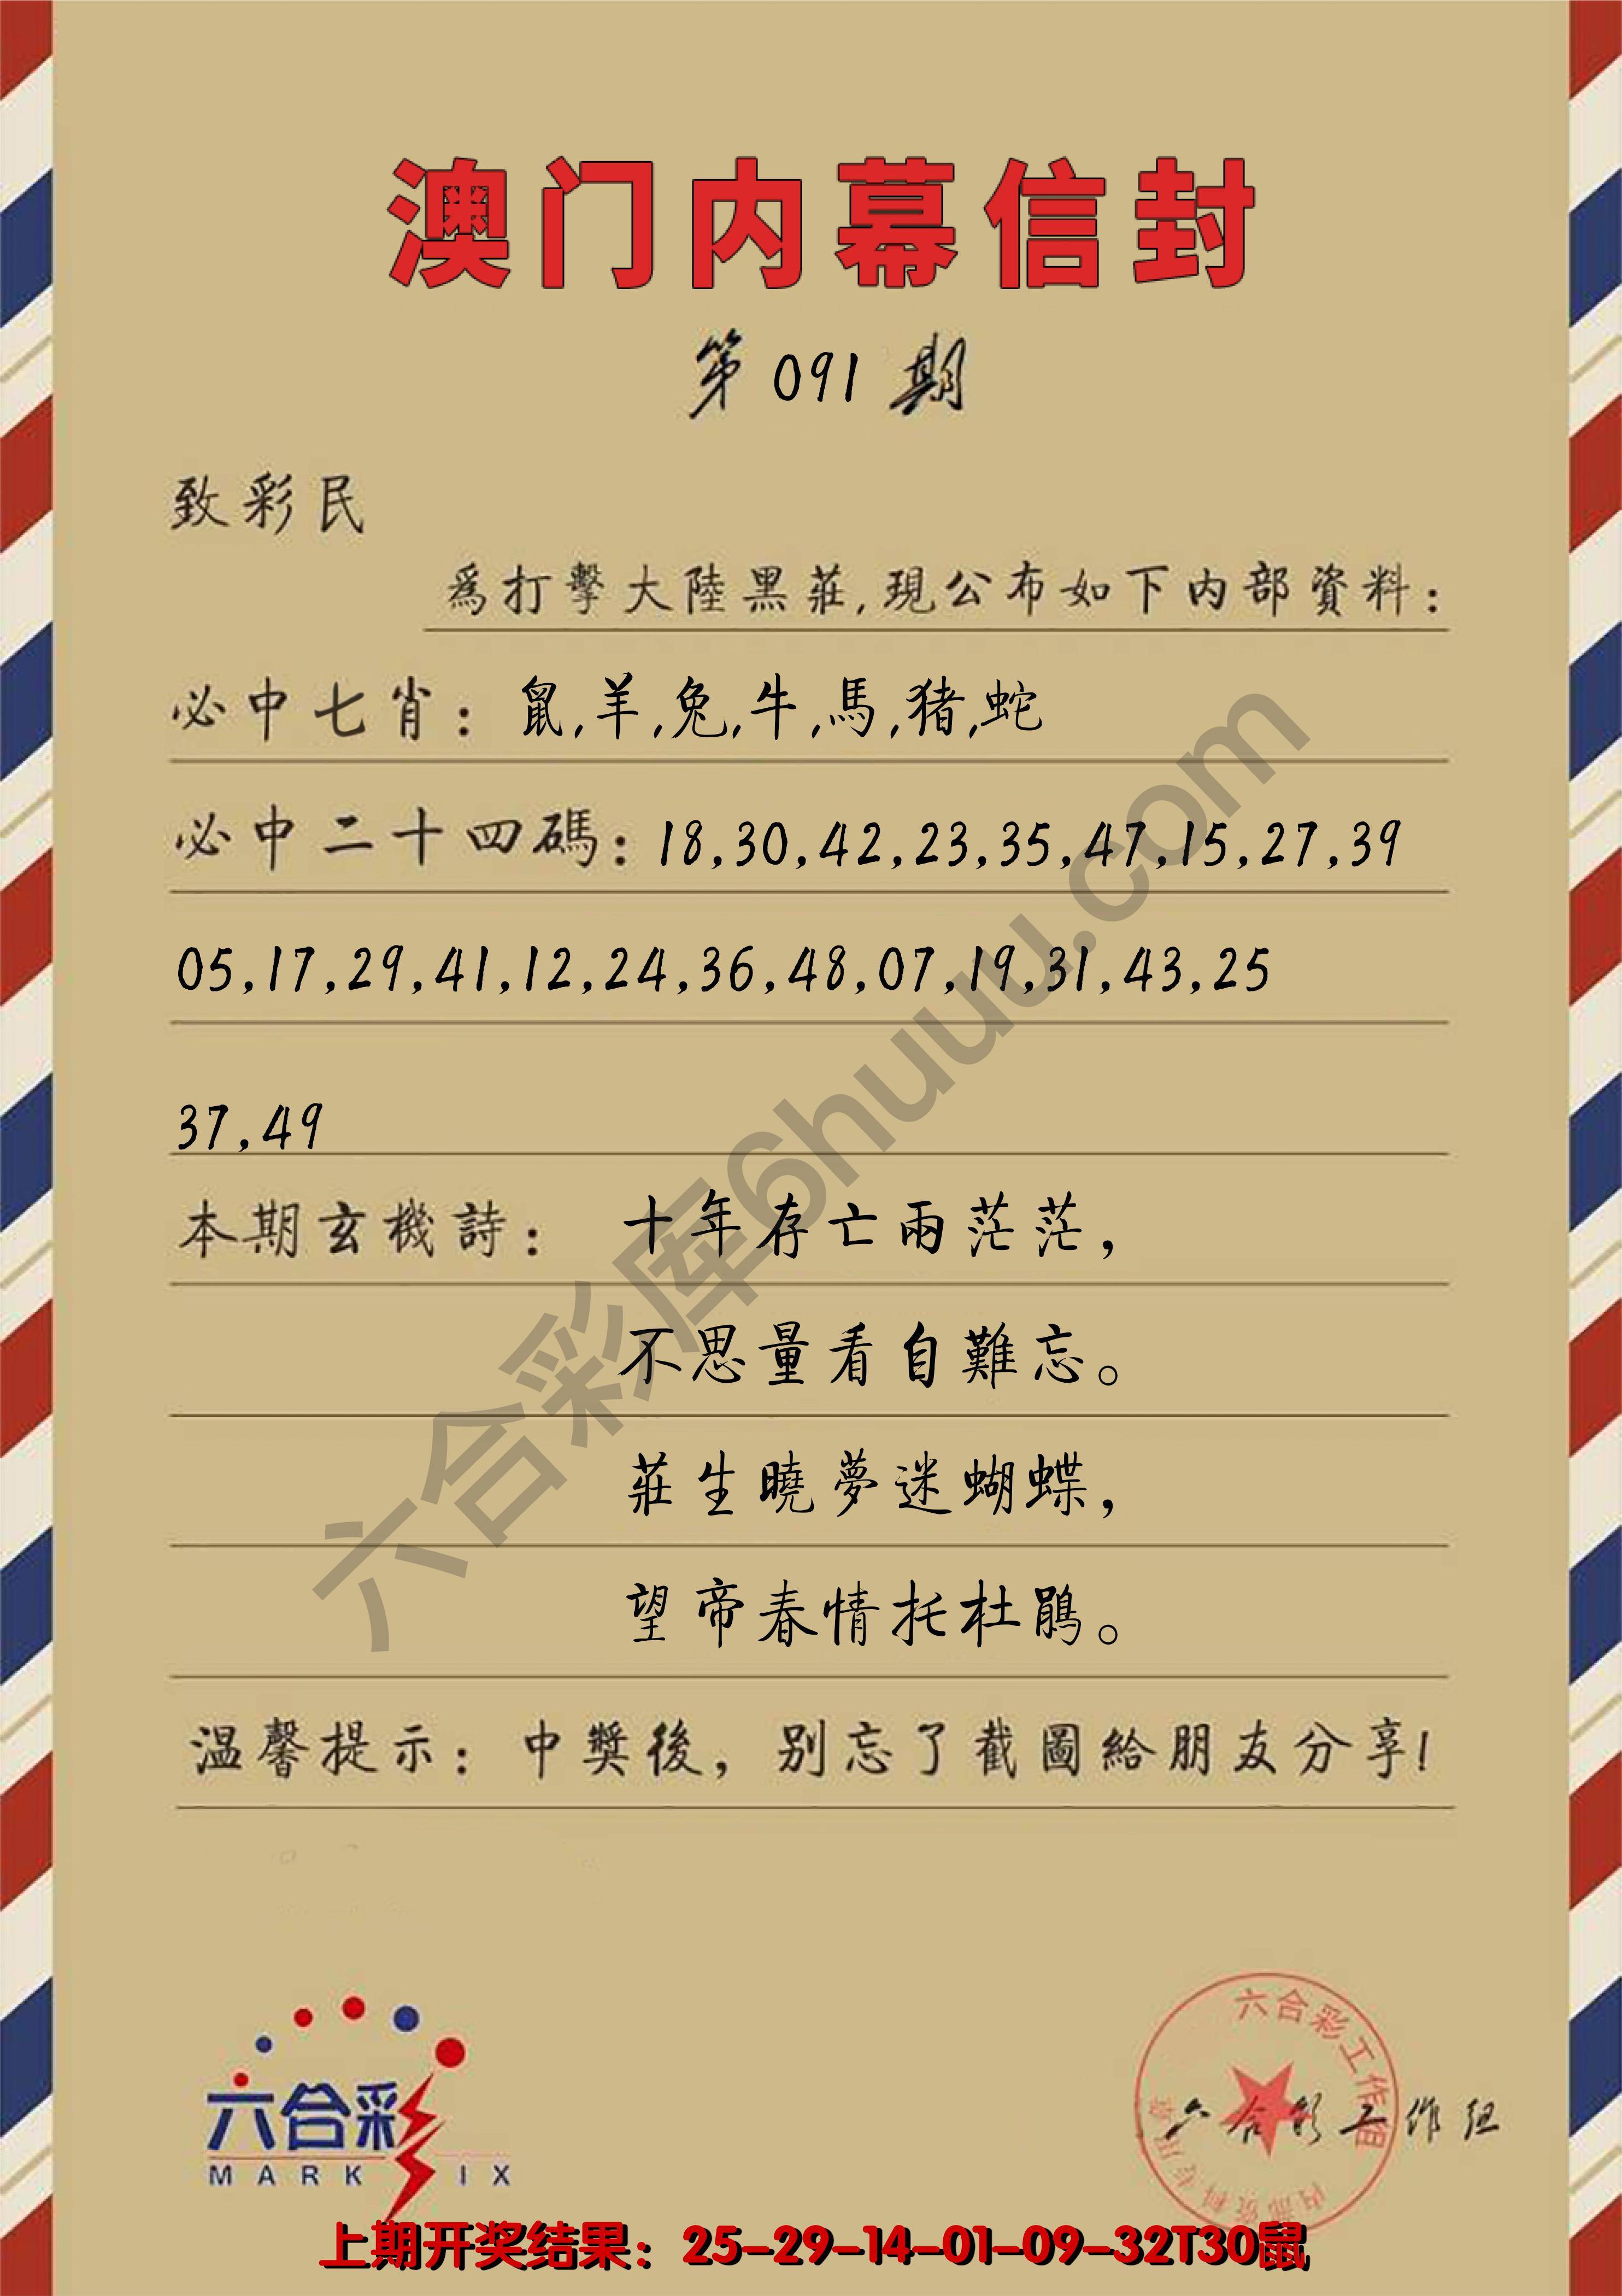 澳门内幕信封
第091期
致彩民
爲打擊大陸黑莊,現公布如下内部資料:
必中七肖: 鼠,羊,兔,牛,馬,猪,蛇
必中二十四碼: 18,30,42,23,35,47,15,27,39
05,17,29,41,12,24,36,48,07,19,31,43,25
37,49
本期玄機詩: 十年存亡兩茫茫，
不思量看自難忘。
莊生曉夢迷蝴蝶，
望帝春情托杜鵑。
温馨提示: 中獎後，别忘了截圖給朋友分享!
六合彩库6huuu.com
六合彩
MARK SIX
六合彩工作组
内部资料专用章
六合彩工作组
上期开奖结果：25-29-14-01-09-32T30鼠